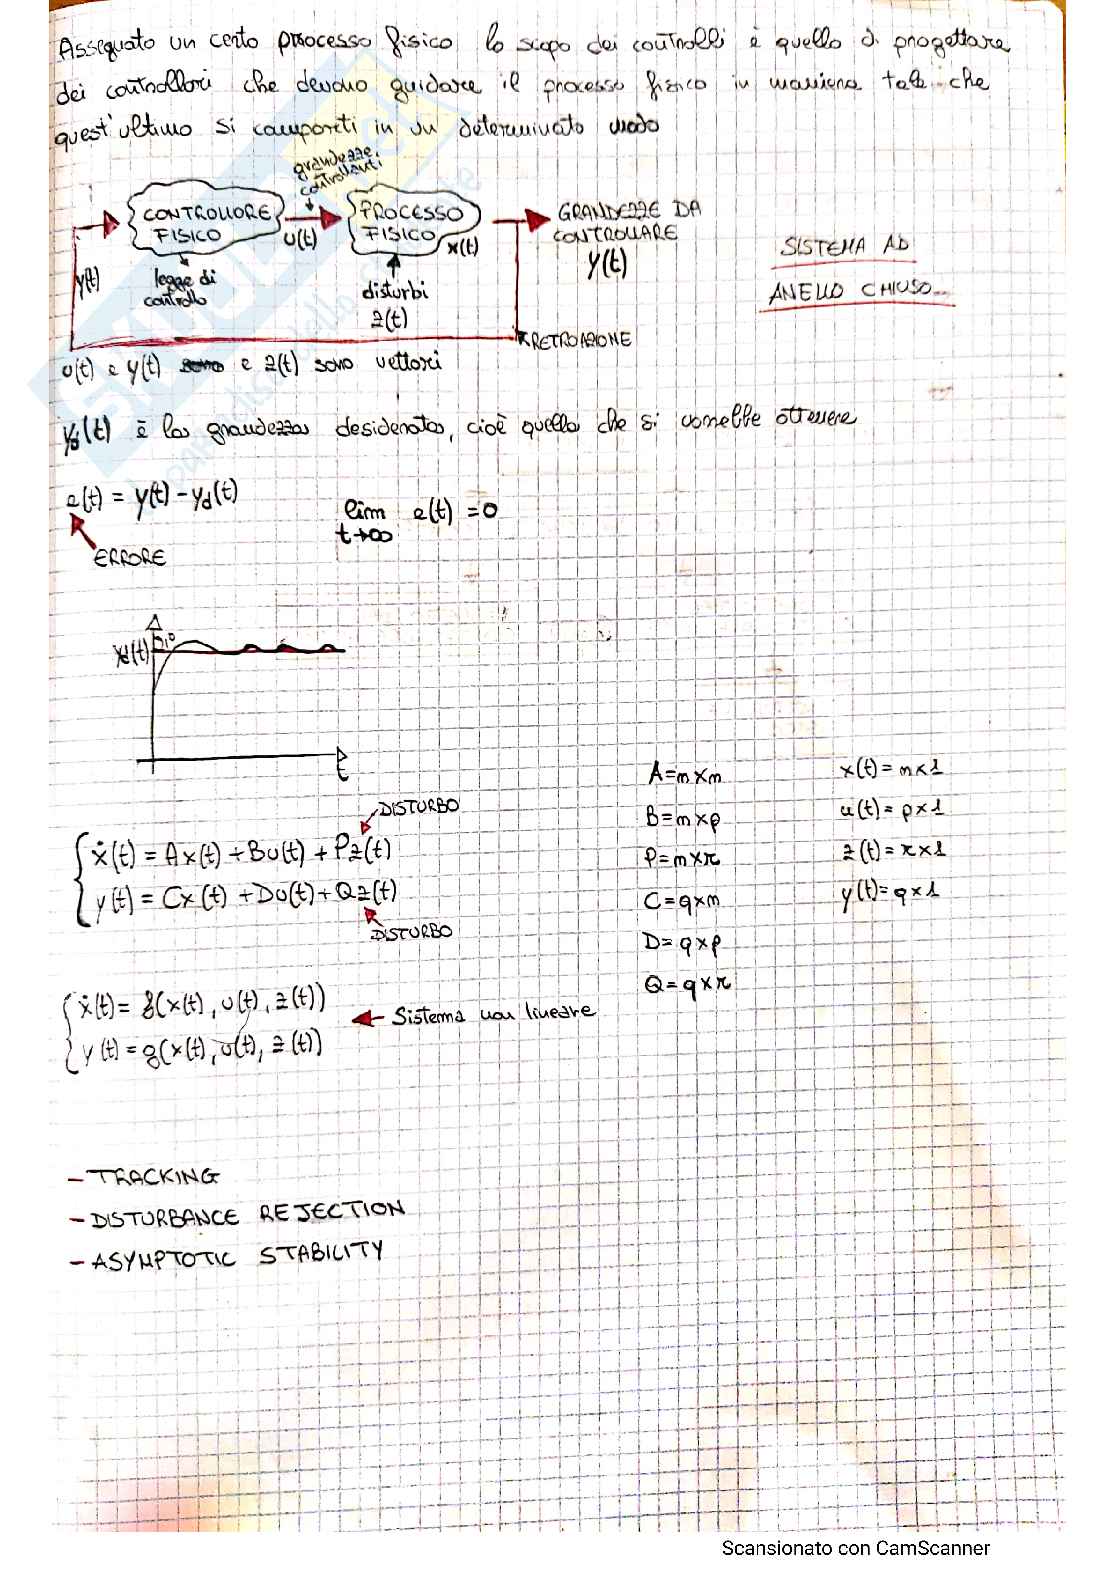 Assegnato un certo processo fisico lo scopo dei controlli è quello di progettare
dei controllori che devono guidare il processo fisico in maniera tale che
quest'ultimo si comporti in un determinato modo
grandezze controllanti
CONTROLLORE FISICO
u(t)
PROCESSO FISICO
x(t)
GRANDEZZE DA CONTROLLARE
y(t)
SISTEMA AD
ANELLO CHIUSO
y(t)
legge di controllo
disturbi
z(t)
RETROAZIONE
u(t) e y(t) e z(t) sono vettori
yd(t) è la grandezza desiderata, cioè quella che si vorrebbe ottenere
e(t) = y(t) - yd(t)
lim e(t) = 0
t→∞
ERRORE
yd(t)
t
DISTURBO
ẋ(t) = Ax(t) + Bu(t) + Pz(t)
y(t) = Cx(t) + Du(t) + Qz(t)
DISTURBO
A = n×n
B = n×p
P = n×r
C = q×n
D = q×p
Q = q×r
x(t) = n×1
u(t) = p×1
z(t) = r×1
y(t) = q×1
ẋ(t) = f(x(t), u(t), z(t))
y(t) = g(x(t), u(t), z(t))
Sistema non lineare
- TRACKING
- DISTURBANCE REJECTION
- ASYMPTOTIC STABILITY
Scansionato con CamScanner